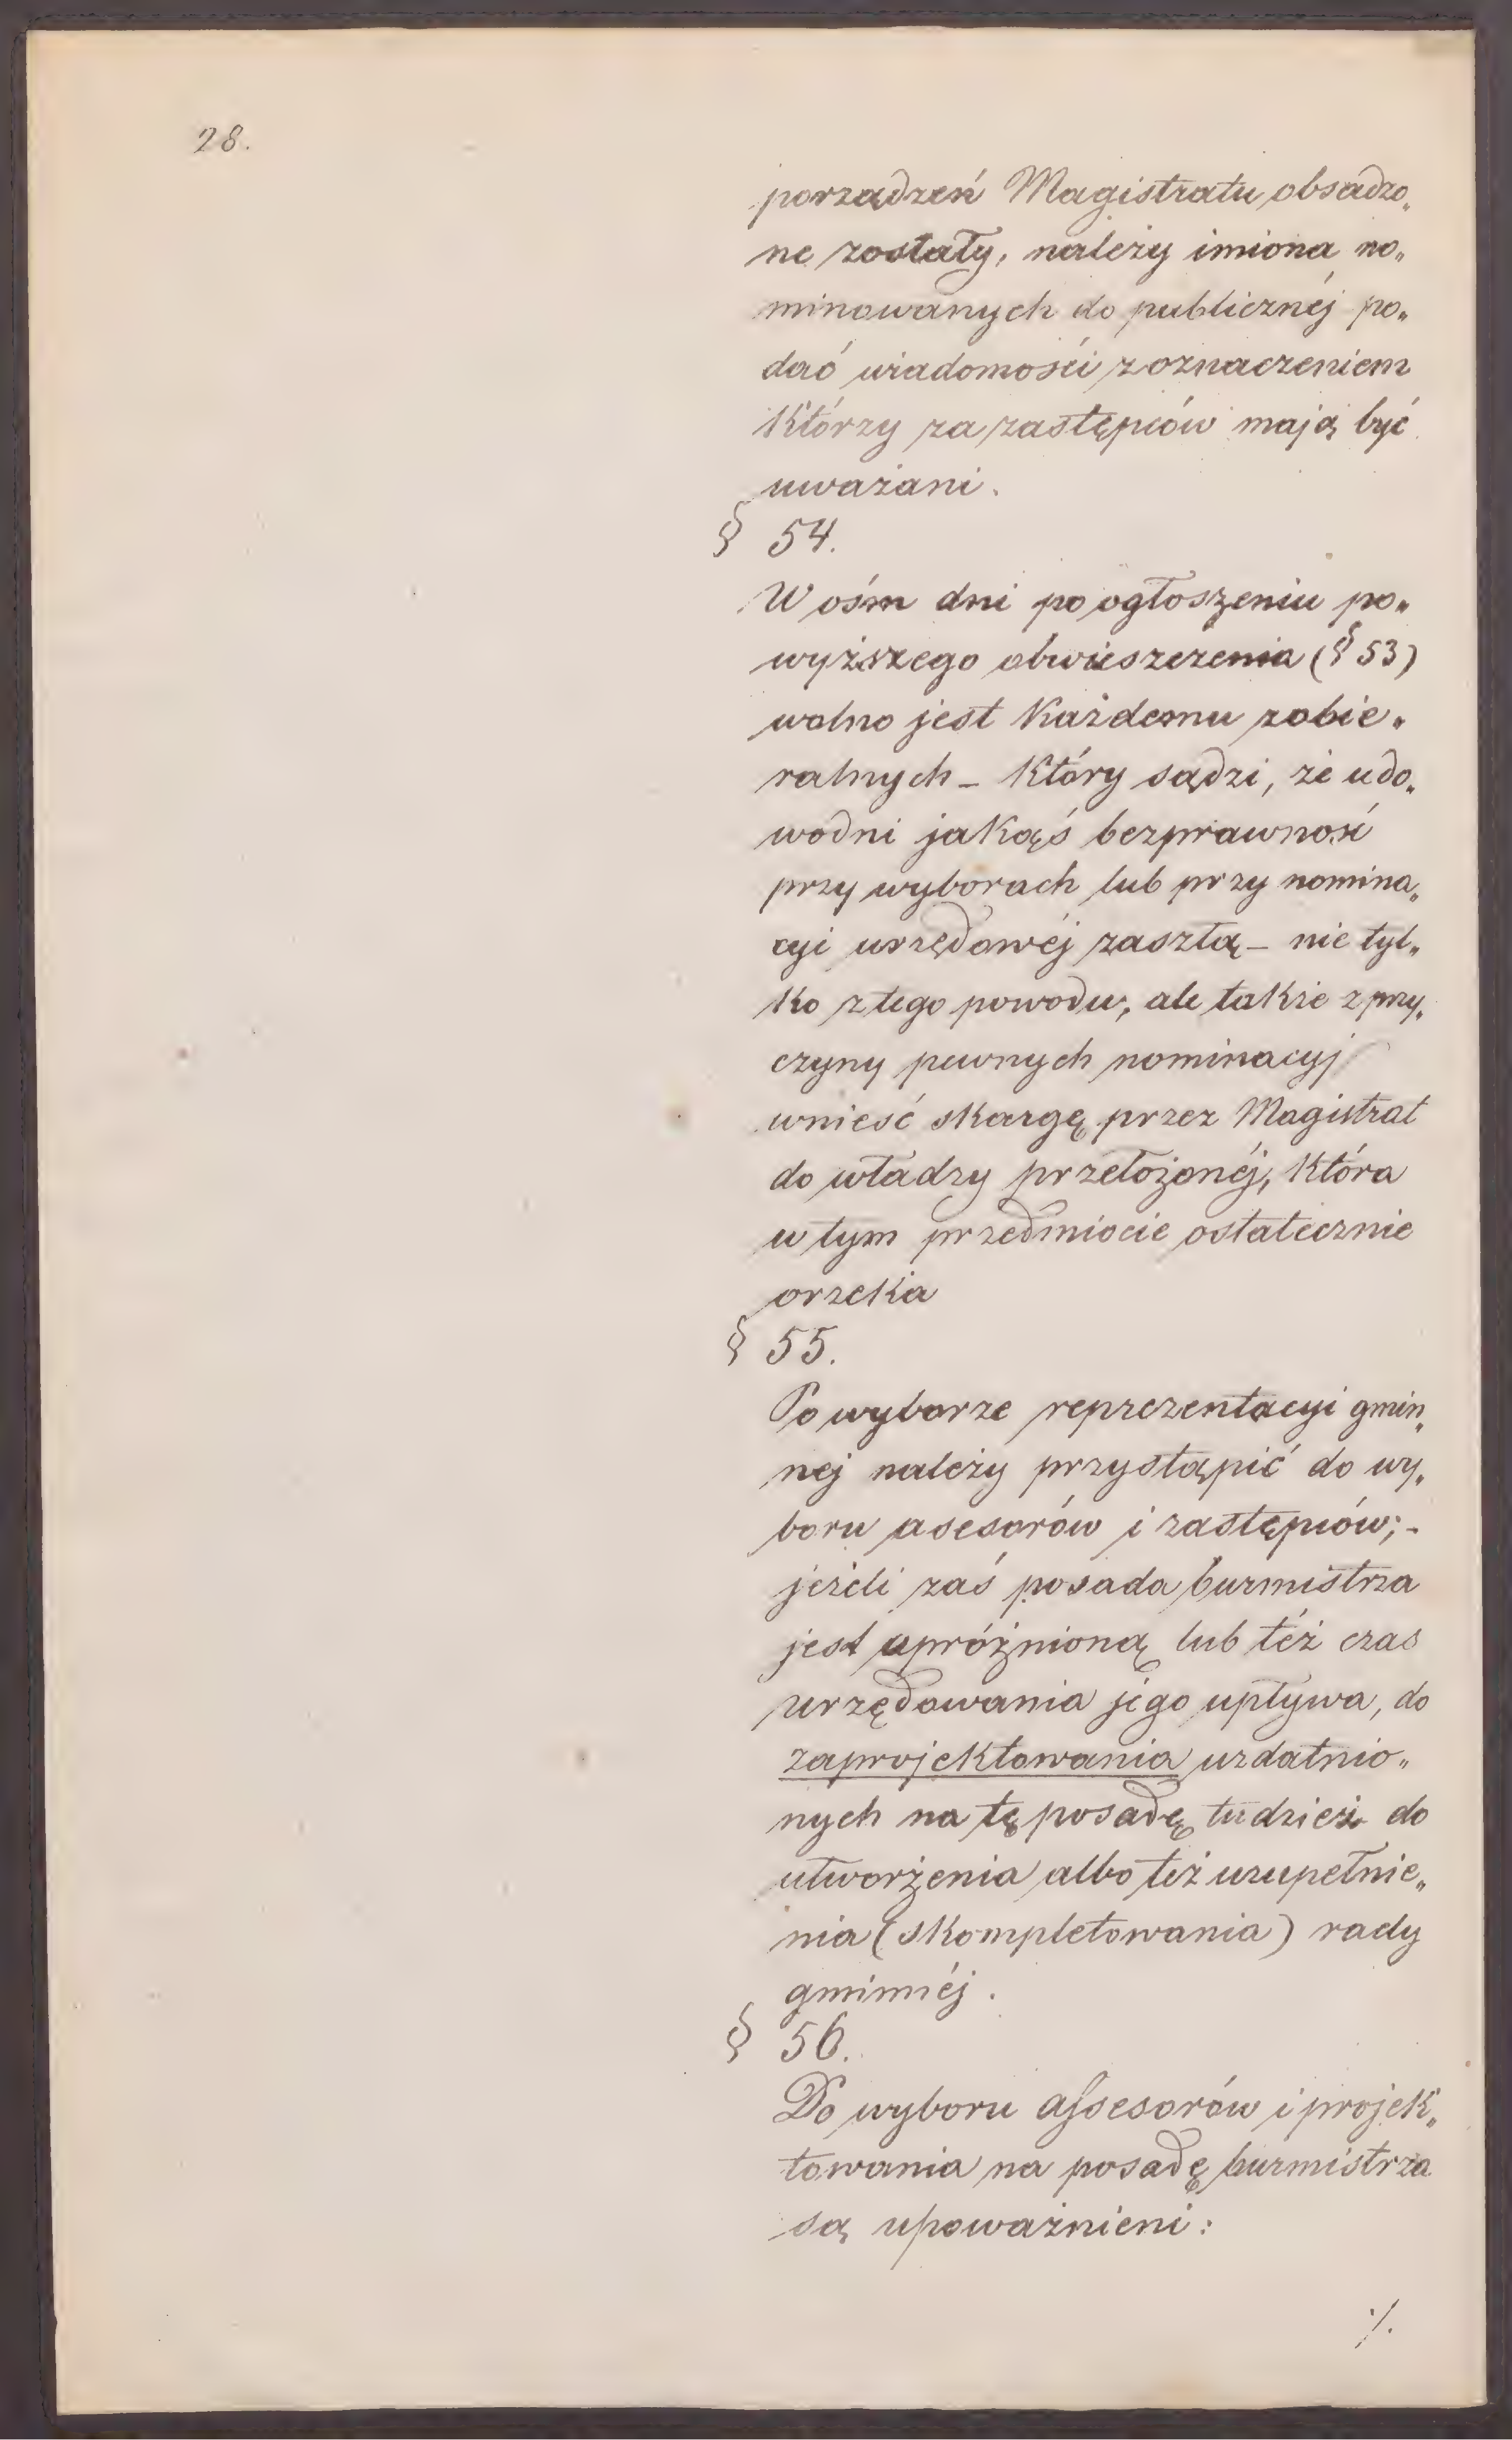 28.
porządzeń Magistratu obsadzo„
ne zostały, należy imiona no„
minowanych do publicznéj po„
dać wiadomości z oznaczeniem
którzy za zastępców mają być
uważani.
§ 54.
W ośm dni po ogłoszeniu po„
wyższego obwieszczenia (§ 53)
wolno jest każdemu zobie„
ralnych – który sądzi, że udo„
wodni jakąś bezprawność
przy wyborach lub przy nomina„
cyi urzędowéj zaszłą – nie tyl„
ko z tego powodu, ale także z przy„
czyny pewnych nominacyj
wnieść skargę przez Magistrat
do władzy przełożonéj, która
w tym przedmiocie ostatecznie
orzeka
§ 55.
Po wyborze reprezentacyi gmin„
nej należy przystąpić do wy„
boru asesorów i zastępców; –
jeżeli zaś posada burmistrza
jest opróżnioną lub téż czas
urzędowania jego upływa, do
zaprojektowania uzdatnio„
nych na tę posadę tudzież do
utworzenia albo też uzupełnie„
nia (skompletowania) rady
gminnéj.
§ 56.
Do wyboru assesorów i projek„
towania na posadę burmistrza
są upoważnieni:
./.